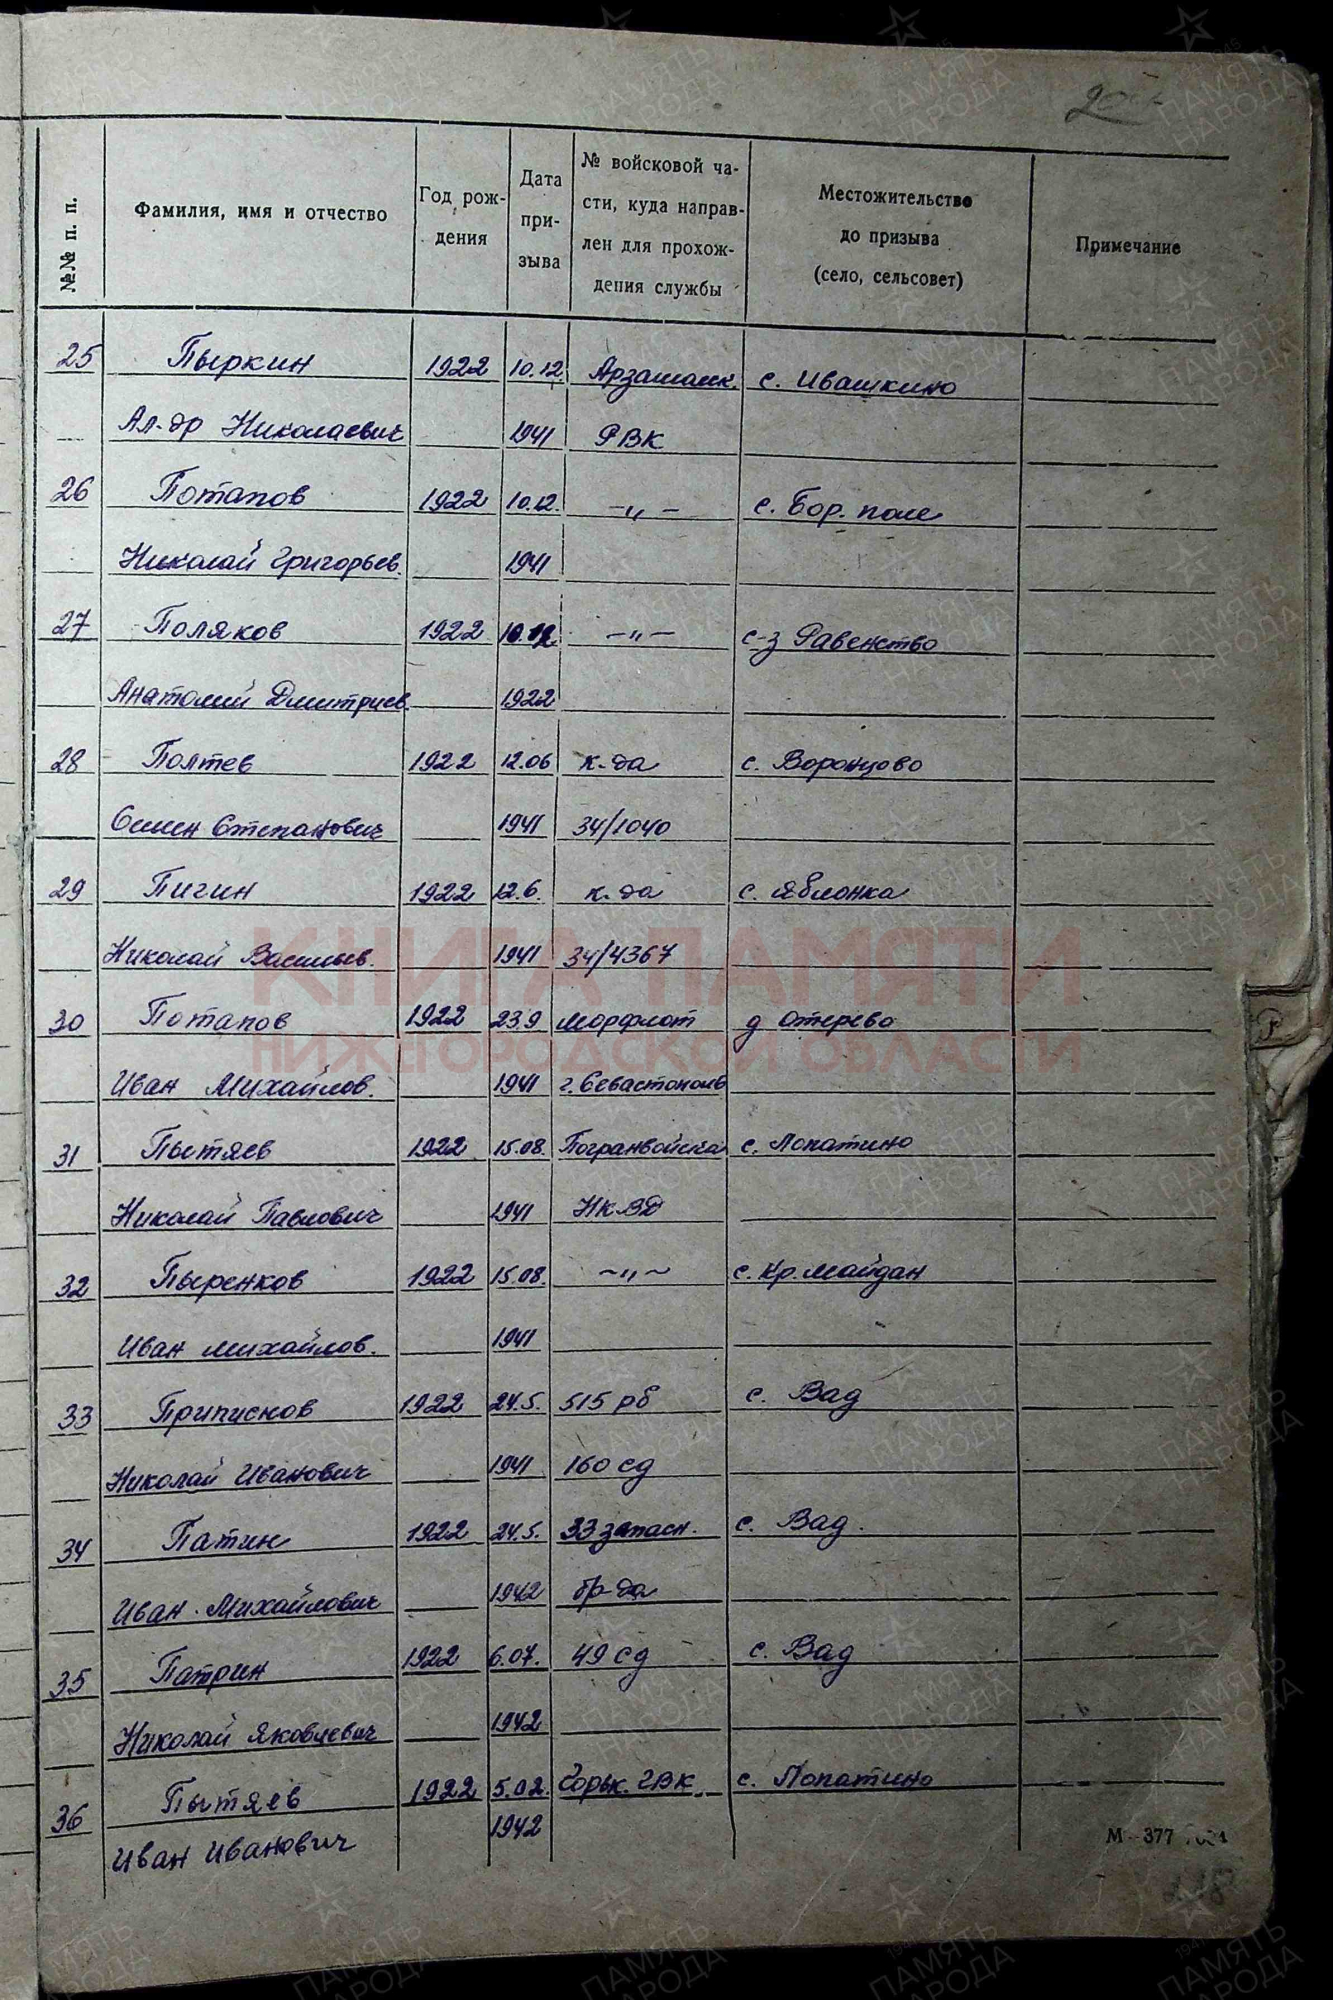 №№ п. п.
Фамилия, имя и отчество
Год рож-
дения
Дата
при-
зыва
№ войсковой ча-
сти, куда направ-
лен для прохож-
дения службы
Местожительство
до призыва
(село, сельсовет)
Примечание
25 Пыркин 1922 10.12. Арзамаск. с. Ивашкино
Ал-др Николаевич 1941 РВК
26 Потапов 1922 10.12. -„- с. Бор. поле
Николай Григорьев. 1941
27 Поляков 1922 10.12 -„- с-з Равенство
Анатолий Дмитриев. 1922
28 Полтев 1922 12.06 к-да с. Воронцово
Семен Степанович 1941 34/1040
29 Пигин 1922 12.6. к-да с. Яблонка
Николай Васильев. 1941 34/4367
30 Потапов 1922 23.9 Морфлот д Отерево
Иван Михайлов. 1941 г. Севастополь
31 Пытяев 1922 15.08. Погранвойска с. Лопатино
Николай Павлович 1941 НКВД
32 Пыренков 1922 15.08. ~„~ с. Кр. Майдан
Иван Михайлов. 1941
33 Приписнов 1922 24.5. 515 рб с. Вад
Николай Иванович 1941 160 сд
34 Патин 1922 24.5. 33 запасн. с. Вад.
Иван Михайлович 1942 бр-да
35 Патрин 1922 6.07. 49 сд с. Вад
Николай Яковлевич 1942
36 Пытяев 1922 5.02. Горьк. ГВК. с. Лопатино
Иван Иванович 1942
М-377
КНИГА ПАМЯТИ
НИЖЕГОРОДСКОЙ ОБЛАСТИ
ПАМЯТЬ
НАРОДА